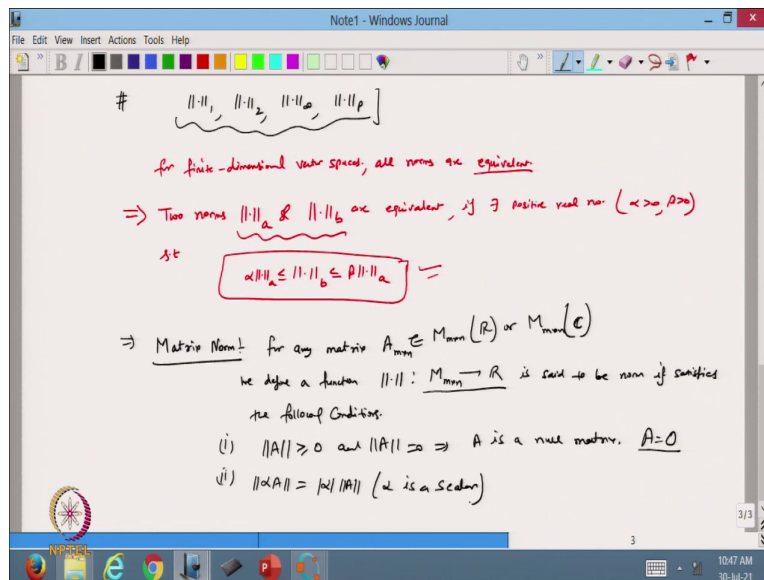 Note1 - Windows Journal
File Edit View Insert Actions Tools Help
# ||·||₁, ||·||₂, ||·||∞, ||·||p ]
for finite-dimensional vector spaces, all norms are equivalent
⇒ Two norms ||·||a & ||·||b are equivalent, if ∃ positive real no. (α>0, β>0)
s.t
α||·||a ≤ ||·||b ≤ β||·||a
⇒ Matrix Norm! for any matrix Am×n ∈ Mm×n(ℝ) or Mm×n(ℂ)
we define a function ||·|| : Mm×n → ℝ is said to be norm if satisfies
the followed Conditions.
(i) ||A|| ≥ 0 and ||A|| = 0 ⇒ A is a null matrix. A=0
(ii) ||αA|| = |α| ||A|| (α is a scalar)
3/3
3
NPTEL
10:47 AM
30-Jul-21